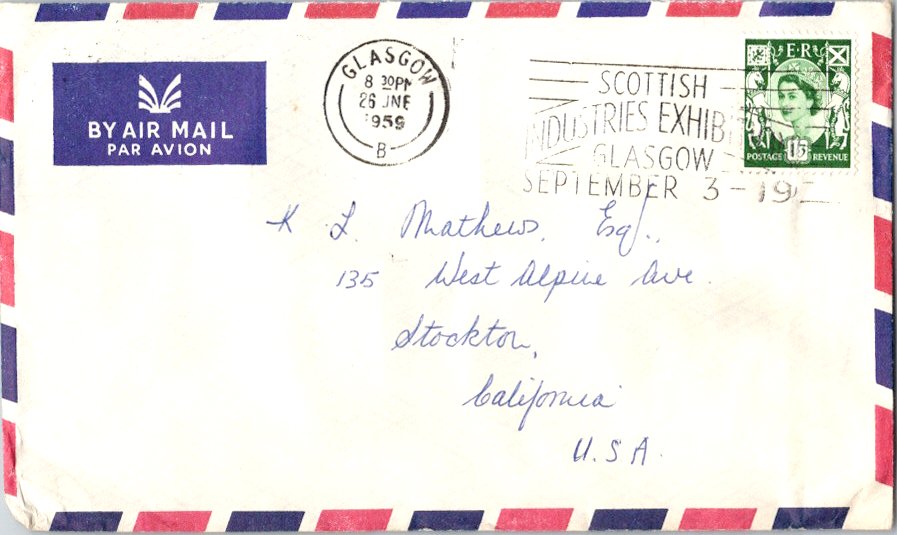 BY AIR MAIL
PAR AVION
GLASGOW
8 30PM
26 JNE
1959
B
SCOTTISH
INDUSTRIES EXHIB
GLASGOW
SEPTEMBER 3 - 19
E R
POSTAGE 1/3 REVENUE
K L. Mathews, Esq.,
135 West Alpine Ave.
Stockton,
California
U.S.A.